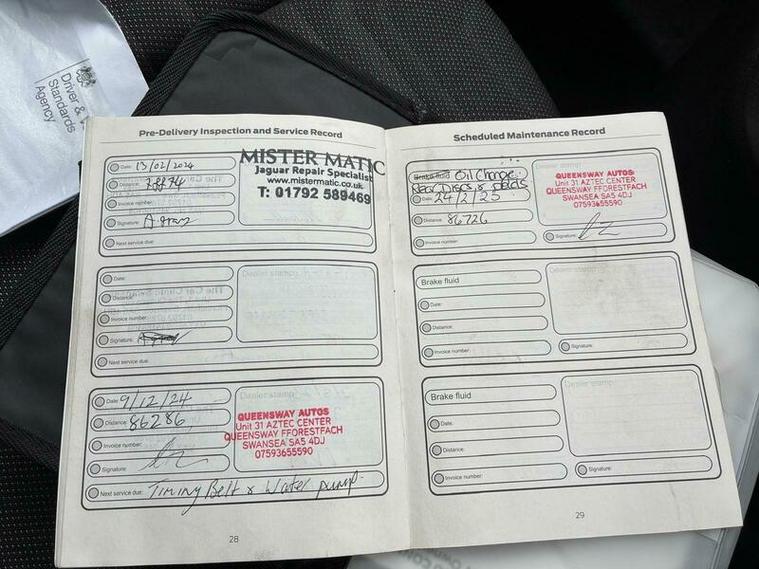 Driver &
Standards
Agency
Pre-Delivery Inspection and Service Record
Date: 13/02/2024
Distance:
Invoice number:
Signature:
Next service due:
MISTER MATIC
Jaguar Repair Specialist
www.mistermatic.co.uk
T: 01792 589469
Date:
Distance:
Invoice number:
Signature:
Next service due:
Dealer stamp:
Date: 9/12/24
Distance: 86286
Invoice number:
Signature:
Next service due: Timing Belt & Water pump.
Dealer stamp:
QUEENSWAY AUTOS
Unit 31 AZTEC CENTER
QUEENSWAY FFORESTFACH
SWANSEA SA5 4DJ
07593655590
28
Scheduled Maintenance Record
Brake fluid Oil Change.
New Discs & pads
Date: 24/2/25
Distance: 86726
Invoice number:
Dealer stamp:
QUEENSWAY AUTOS
Unit 31 AZTEC CENTER
QUEENSWAY FFORESTFACH
SWANSEA SA5 4DJ
07593655590
Signature:
Brake fluid
Date:
Distance:
Invoice number:
Dealer stamp:
Signature:
Brake fluid
Date:
Distance:
Invoice number:
Dealer stamp:
Signature:
29